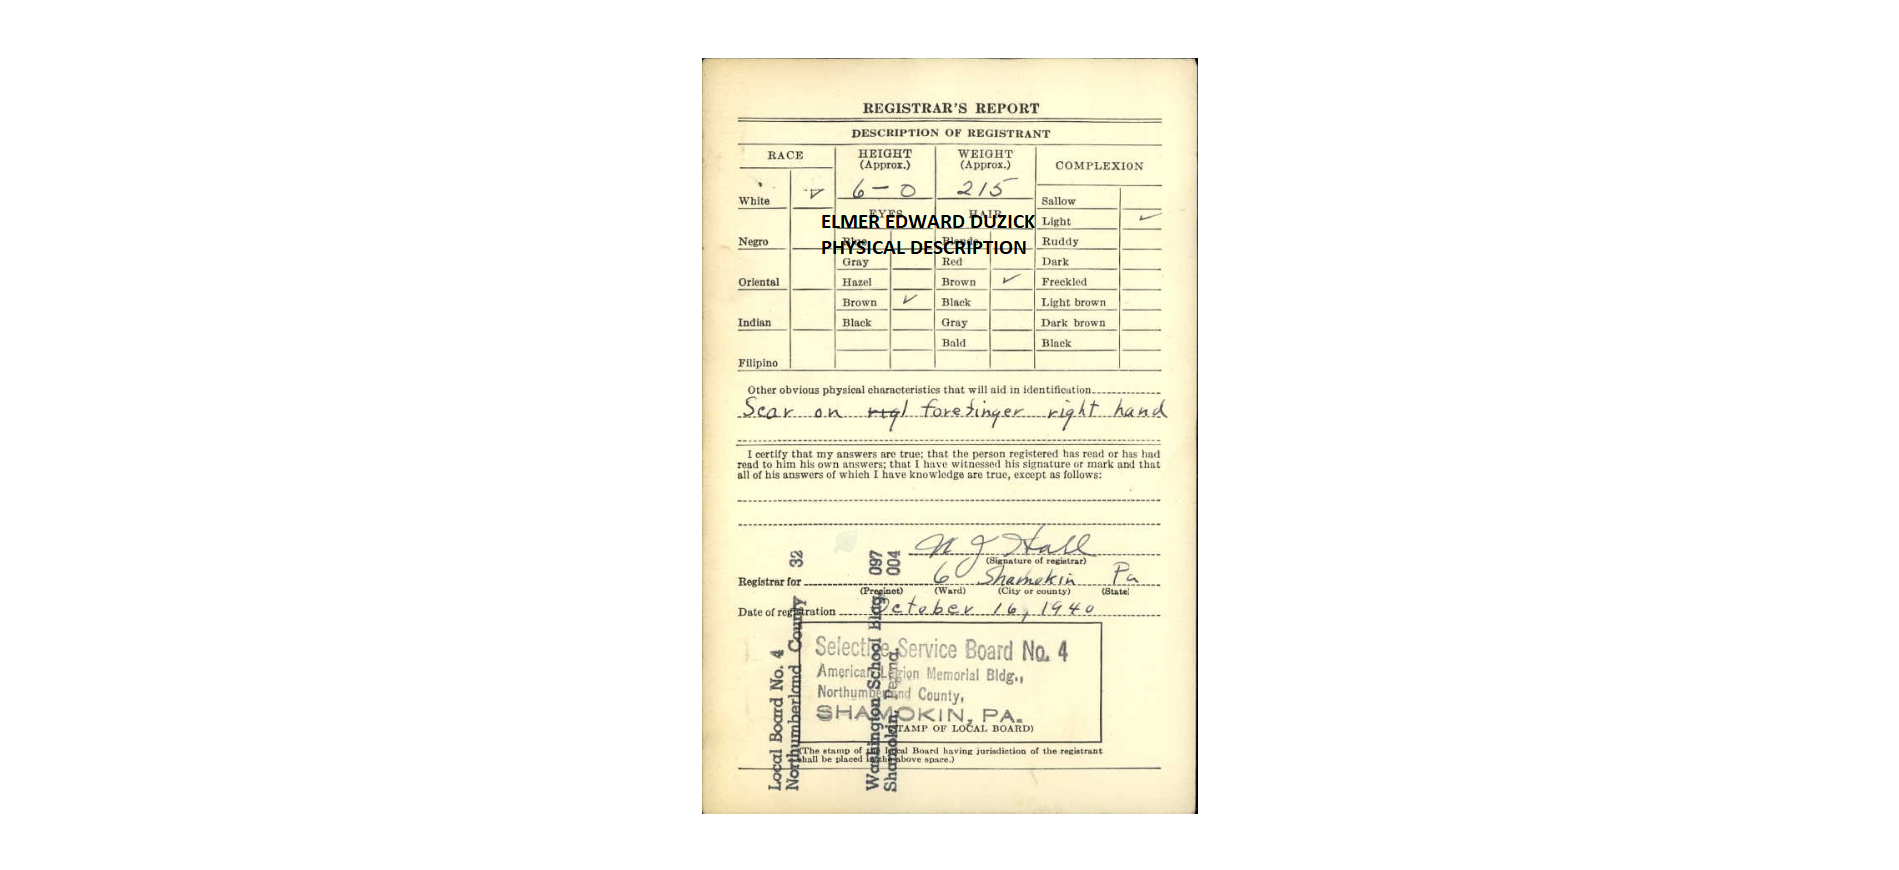 REGISTRAR'S REPORT
DESCRIPTION OF REGISTRANT
RACE
HEIGHT
(Approx.)
WEIGHT
(Approx.)
COMPLEXION
6-0
215
White
Sallow
EYES
HAIR
ELMER EDWARD DUZICK
Light
Negro
Blue
Blonde
Ruddy
PHYSICAL DESCRIPTION
Gray
Red
Dark
Oriental
Hazel
Brown
Freckled
Brown
Black
Light brown
Indian
Black
Gray
Dark brown
Bald
Black
Filipino
Other obvious physical characteristics that will aid in identification
Scar on forefinger right hand
I certify that my answers are true; that the person registered has read or has had
read to him his own answers; that I have witnessed his signature or mark and that
all of his answers of which I have knowledge are true, except as follows:
Hall
(Signature of registrar)
Registrar for 6 Shamokin Pa
(Precinct) (Ward) (City or county) (State)
Date of registration October 16, 1940
Selective Service Board No. 4
American Legion Memorial Bldg.,
Northumberland County,
SHAMOKIN, PA.
(STAMP OF LOCAL BOARD)
(The stamp of the Local Board having jurisdiction of the registrant
shall be placed in the above space.)
Local Board No. 4 32
Northumberland County
Washington School Bldg. 097
Shamokin, Penna. 004